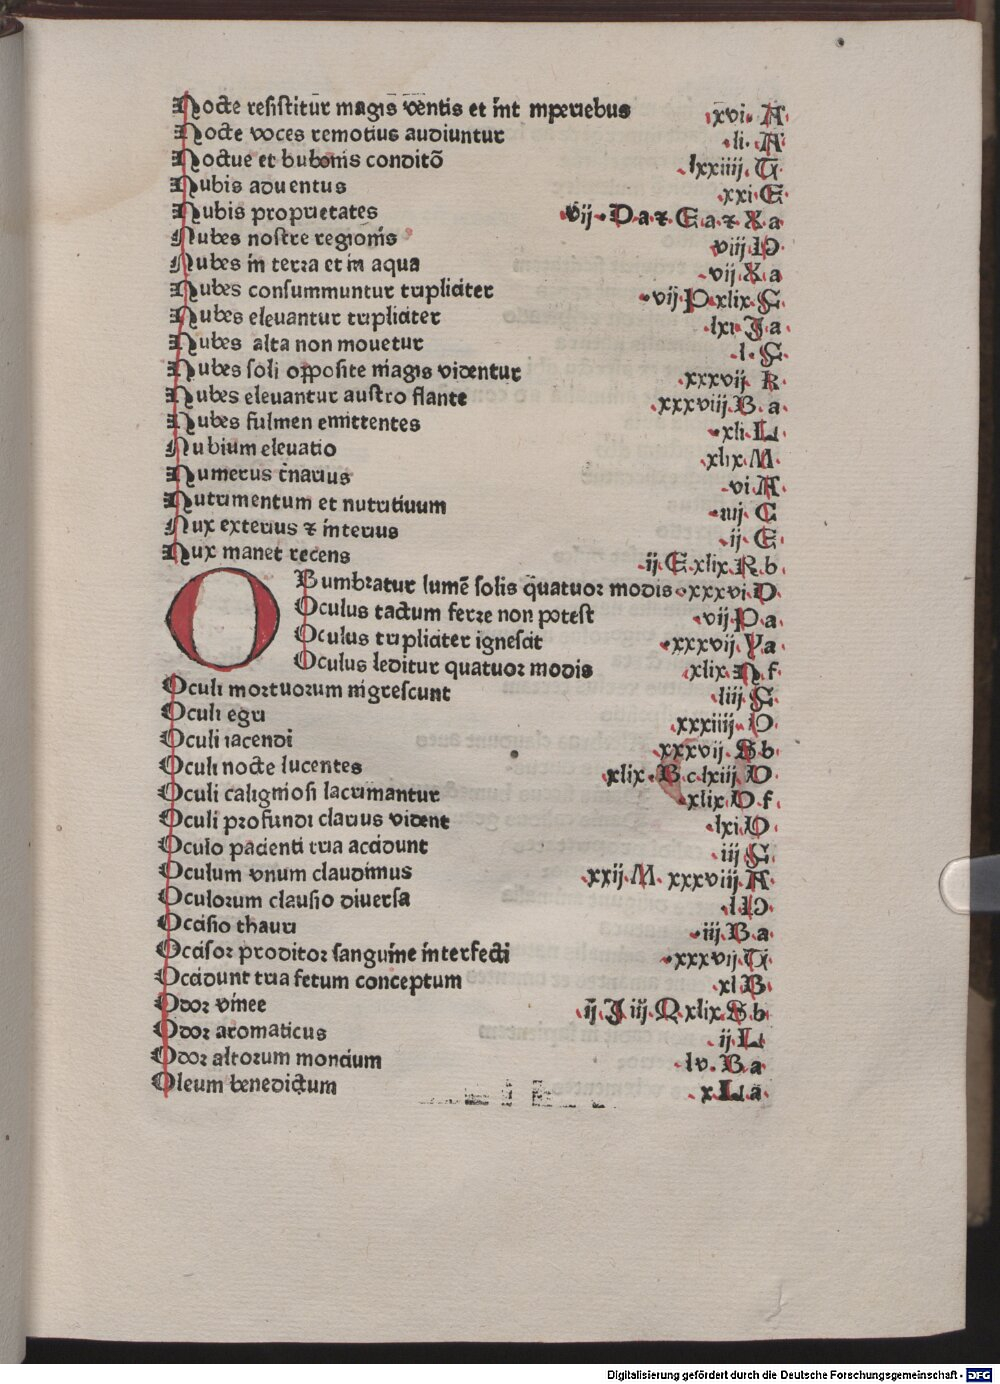 Nocte resistitur magis ventis et int mperiebus ·xvi· A·
Nocte voces remotius audiuntur ·li· A·
Noctue et bubonis conditō ·lxxiiij· G·
Nubis aduentus ·xxi E·
Nubis proprietates vij·D a ⁊ E a ⁊ X a
Nubes nostre regionis viiij D·
Nubes in terra et in aqua ·vij X a
Nubes consummuntur tripliciter ·vij P xlix G·
Nubes eleuantur tripliciter ·lxi I a
Nubes alta non mouetur ·l· G·
Nubes soli opposite magis videntur ·xxxvij R·
Nubes eleuantur austro flante ·xxxviij B a·
Nubes fulmen emittentes ·xli L·
Nubium eleuatio ·xlix M·
Numerus t̄narius ·vi A·
Nutrimentum et nutritiuum ·iiij C·
Nux exterius ⁊ interius ·ij· E·
Nux manet recens ·ij E xlix R b
OBumbratur lumē solis quatuor modis ·xxxvi D·
Oculus tactum ferre non potest ·vij P a·
Oculus tripliciter ignescit ·xxxvij Y a·
Oculus leditur quatuor modis ·xlix N f·
Oculi mortuorum nigrescunt ·liij G·
Oculi egri xxxiiij· D·
Oculi iacendi ·xxxvij· S b·
Oculi nocte lucentes xlix·B c lxiij D·
Oculi caliginosi lacrimantur ·xlix D f·
Oculi profundi clarius vident ·lxi D·
Oculo pacienti tria accidunt ·iij G·
Oculum vnum claudimus ·xxij·M· xxxviij A·
Oculorum clausio diuersa ·l D·
Occisio thauri ·iij B a·
Occisor proditor sanguine interfecti ·xxxvij G·
Occidunt tria fetum conceptum xl B·
Odor vinee ·ij I iij Q xlix S b·
Odor aromaticus ·ij L·
Odor altorum moncium ·lv· B a·
Oleum benedictum ·x L a·
Digitalisierung gefördert durch die Deutsche Forschungsgemeinschaft - DFG